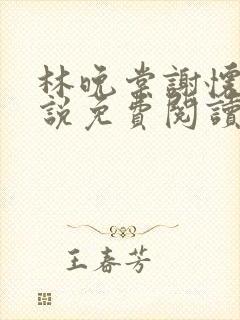 林晚棠謝懷
說免費閱讀
王春芳